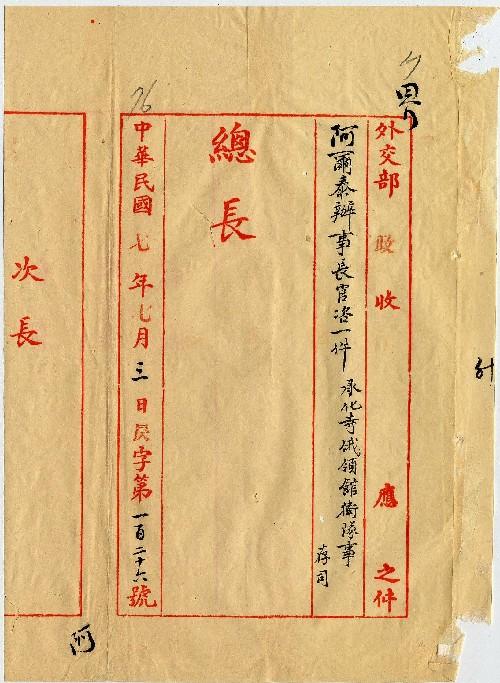 界
四
外交部 收 應 之件
阿爾泰辦事長官咨一件 承化寺俄領館衛隊事
蔣司
總長
76
中華民國七年七月三日辰字第一百二十六號
次長
阿